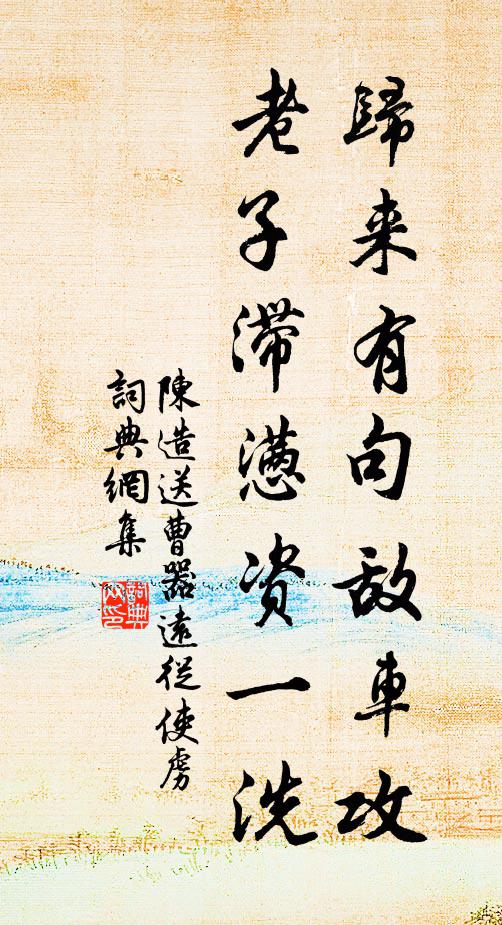 歸来有句敌車攻
老子滞懑资一洗
陳造送曹器遠從使虏
詞典網集
詞典